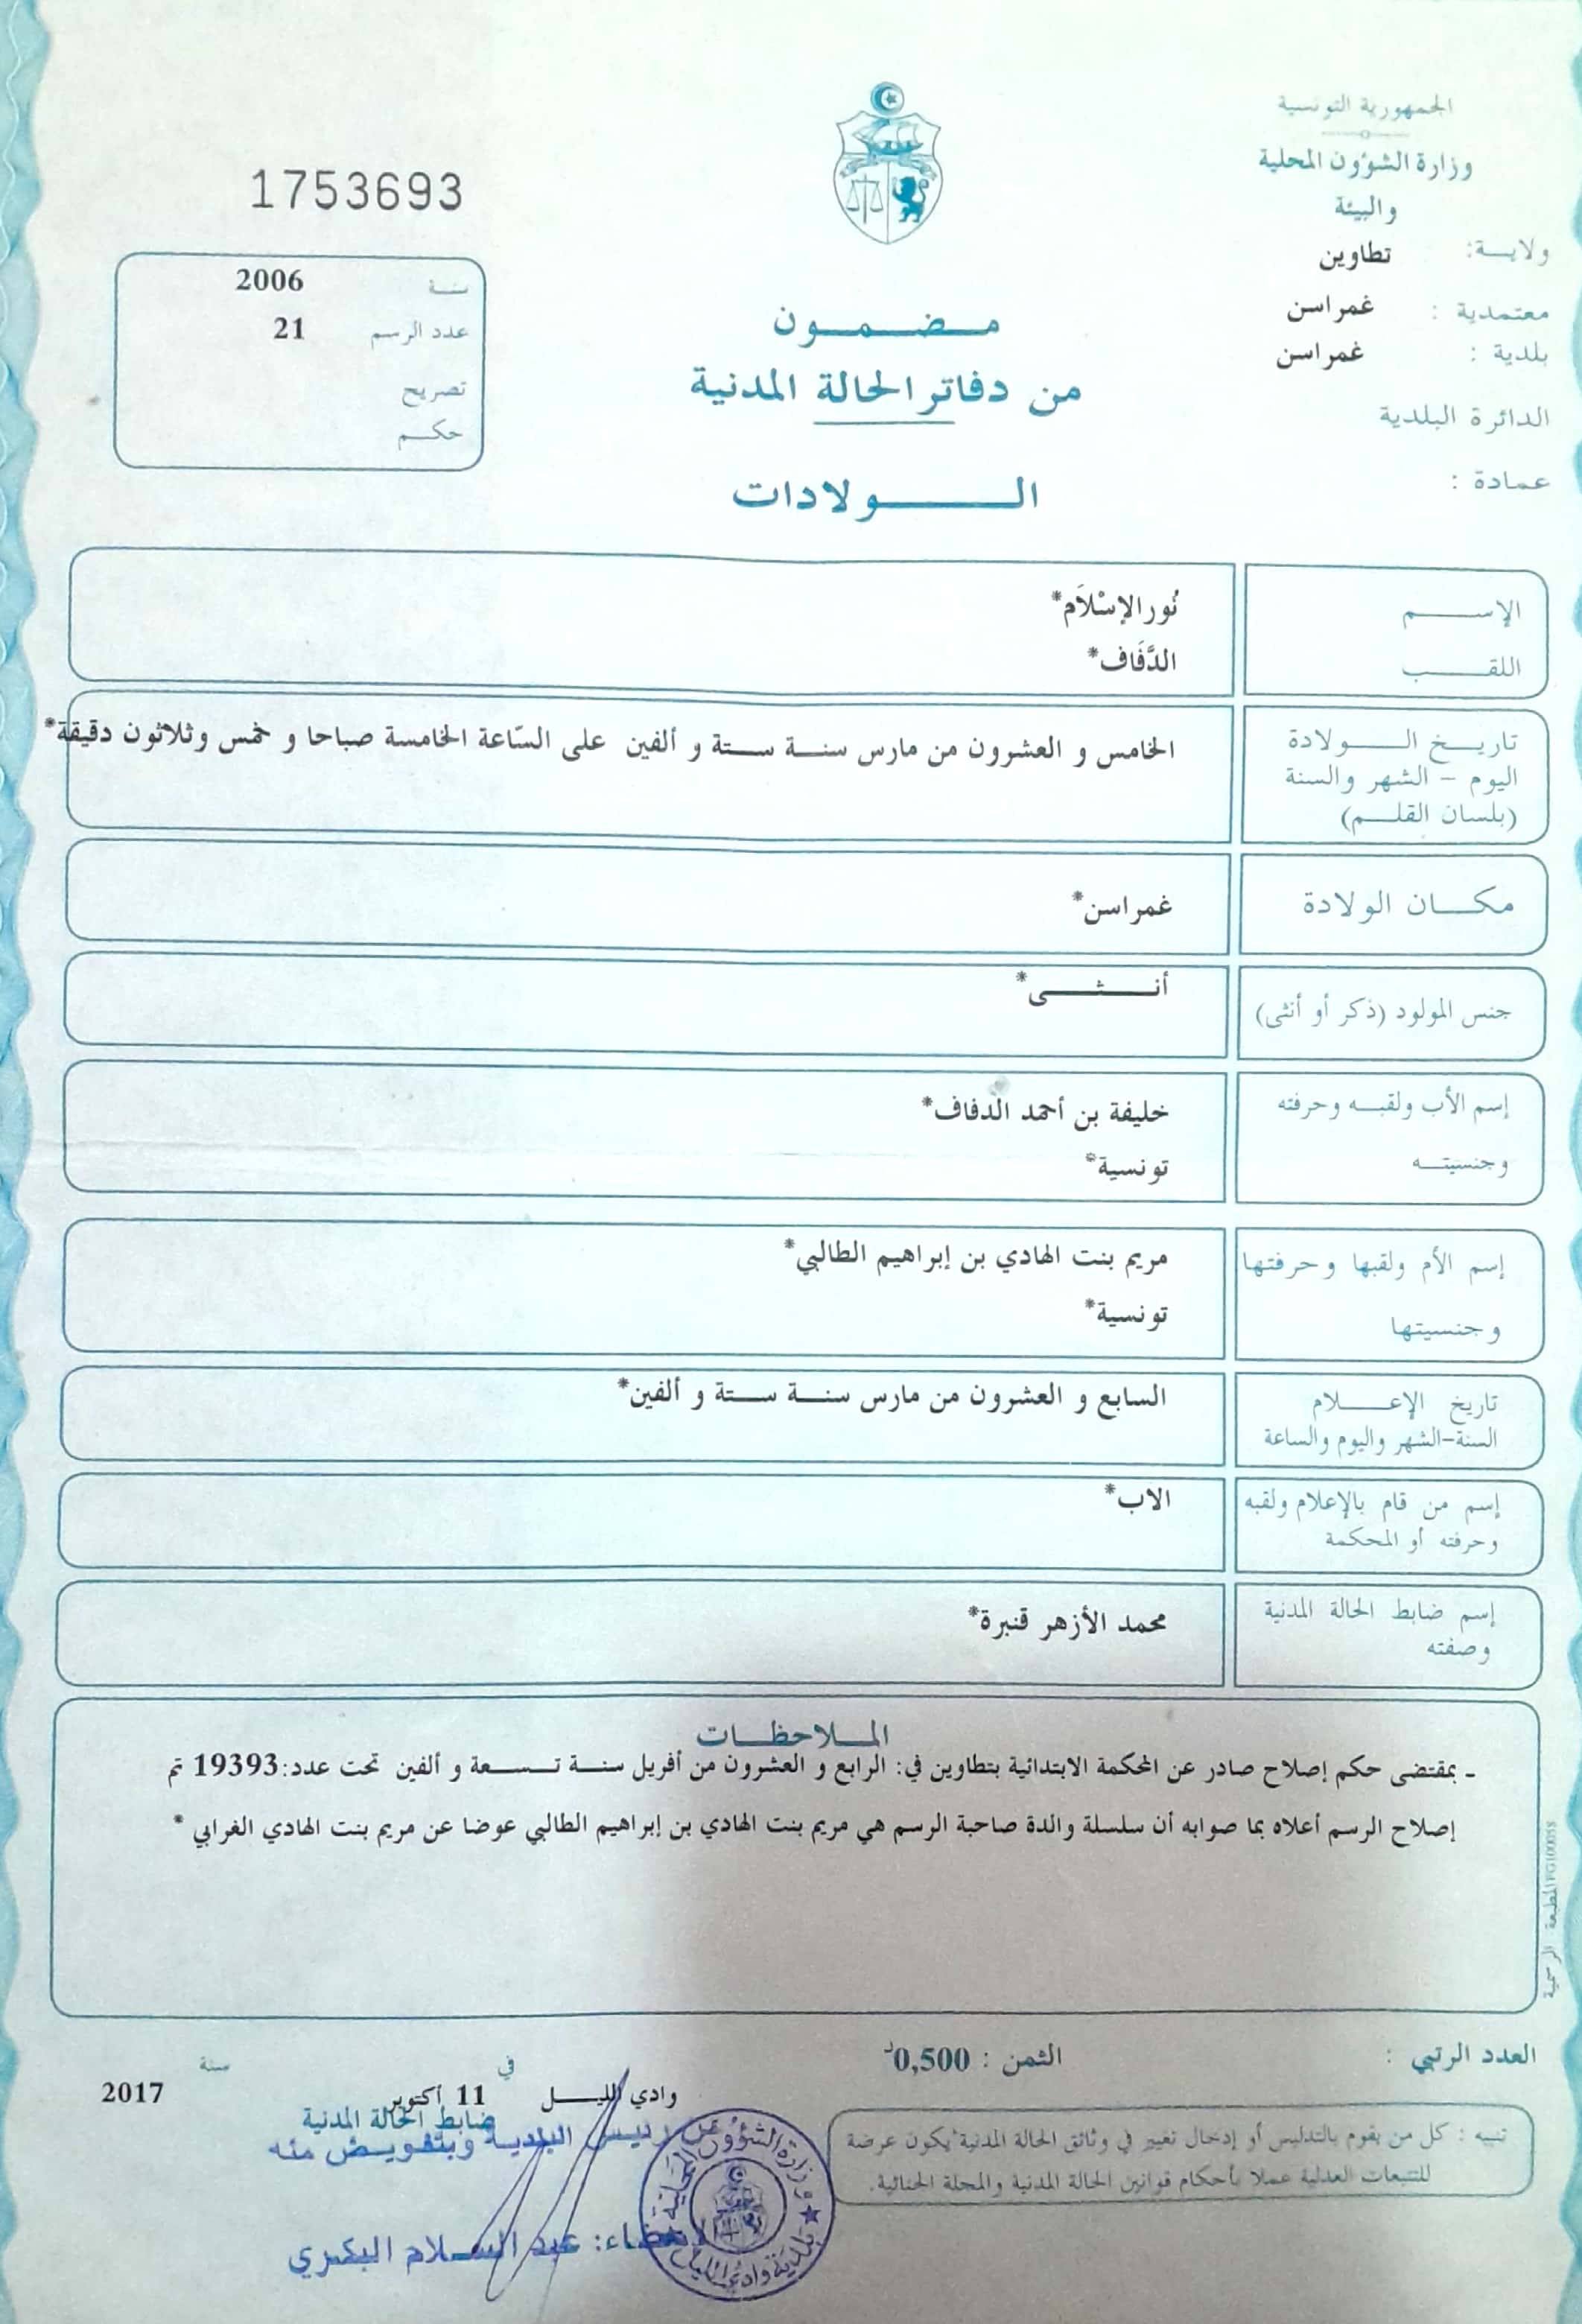 الجمهورية التونسية
وزارة الشؤون المحلية
والبيئة
ولايـــة: تطاوين
معتمدية : غمراسن
بلدية : غمراسن
الدائرة البلدية
عمادة :
1753693
سنـــة 2006
عدد الرسم 21
تصريح
حكـــم
مـــضـــمـــون
من دفاتر الحالة المدنية
الـــــولادات
الإســـــم نُور الإسْلَام*
اللقـــــب الدَّفَاف*
تاريـــخ الــــولادة
اليوم - الشهر والسنة
(بلسان القلـــم)
الخامس و العشرون من مارس سنـــة ستـــة و ألفين على السّاعة الخامسة صباحا و خمس وثلاثون دقيقة*
مكـــان الولادة غمراسن*
جنس المولود (ذكر أو أنثى) أنـــــثـــــى*
إسم الأب ولقبـــه وحرفته خليفة بن أحمد الدفاف*
وجنسيتـــه تونسية*
إسم الأم ولقبها وحرفتها مريم بنت الهادي بن إبراهيم الطالبي*
وجنسيتها تونسية*
تاريخ الإعـــــلام
السنة-الشهر واليوم والساعة
السابع و العشرون من مارس سنـــة ستـــة و ألفين*
إسم من قام بالإعلام ولقبه
وحرفته أو المحكمة
الاب*
إسم ضابط الحالة المدنية
وصفته
محمد الأزهر قنبرة*
المـــلاحظـــات
- بمقتضى حكم إصلاح صادر عن المحكمة الابتدائية بتطاوين في: الرابع و العشرون من أفريل سنـــة تـــسعـــة و ألفين تحت عدد:19393 تم
إصلاح الرسم أعلاه بما صوابه أن سلسلة والدة صاحبة الرسم هي مريم بنت الهادي بن إبراهيم الطالبي عوضا عن مريم بنت الهادي الغرابي *
المطبعة الرسمية
العدد الرتبي :
الثمن : 0,500د
وادي الليـــل في 11 أكتوبر سنة 2017
ضابط الحالة المدنية
عن رئيس البلدية وبتفويض منه
الإمضاء: عبد السلام البكري
وزارة الشؤون المحلية
بلدية وادي الليل
تنبيه : كل من يقوم بالتدليس أو إدخال تغيير في وثائق الحالة المدنية يكون عرضة
للتتبعات العدلية عملا بأحكام قوانين الحالة المدنية والمجلة الجنائية.